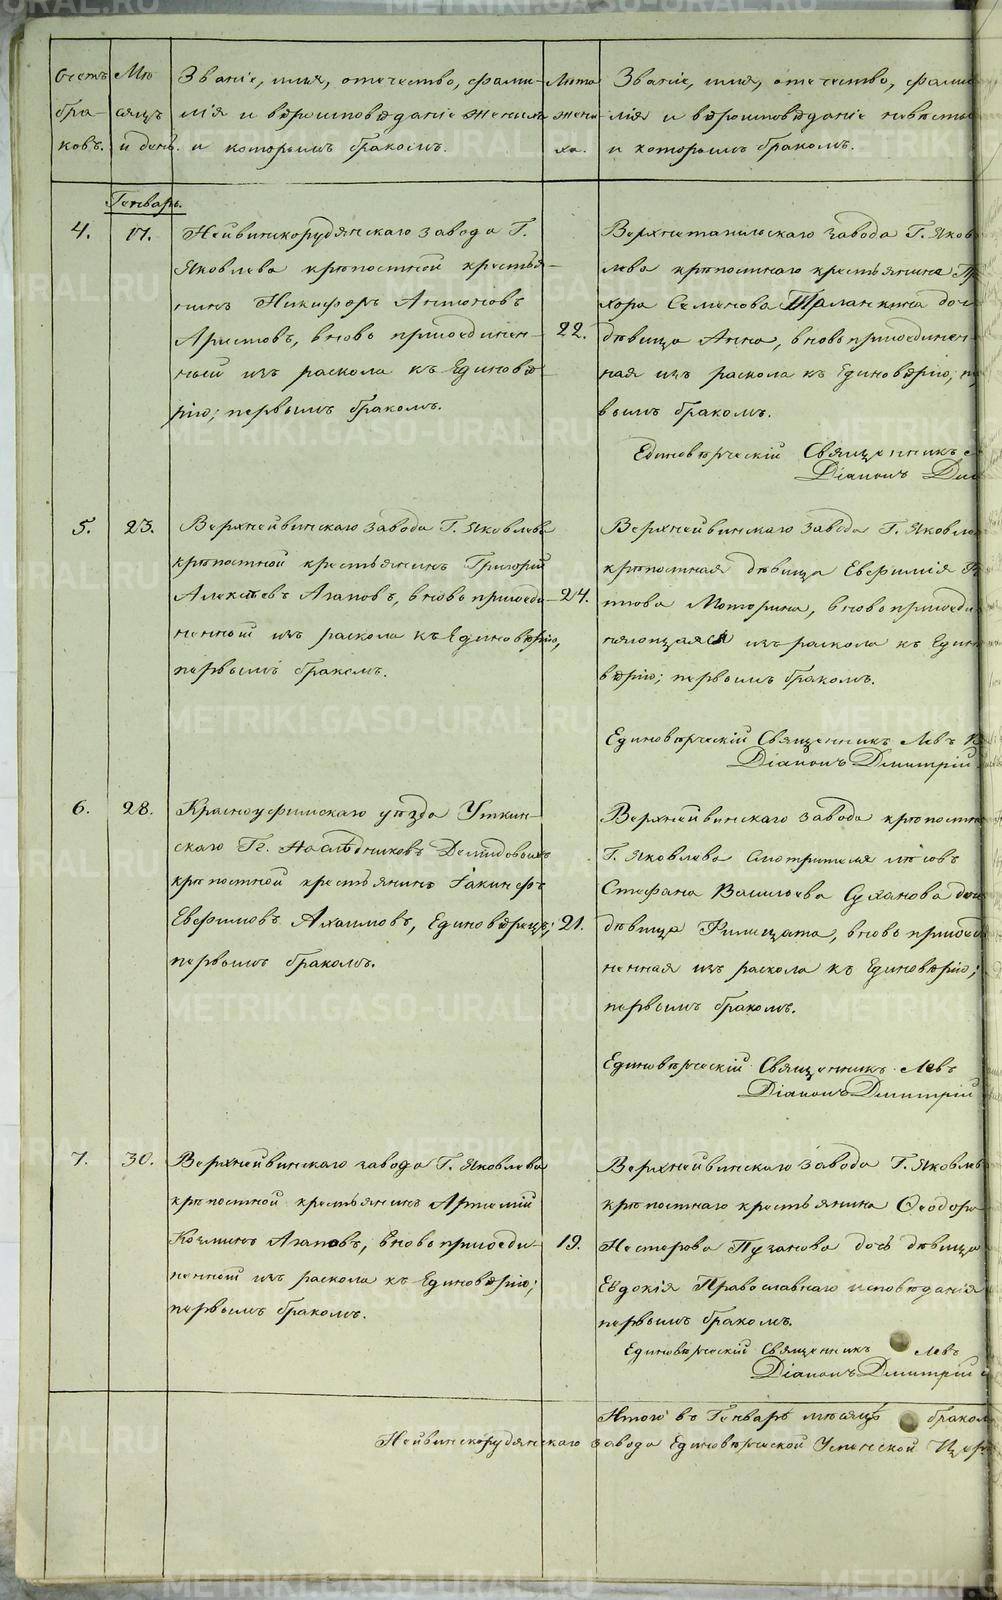 Счетъ
бра-
ковъ.
Мѣ
сяцъ
и день.
Званіе, имя, отчество, фами-
лія и вѣроисповѣданіе жениха
и которымъ бракомъ.
Лѣта
жени-
ха.
Званіе, имя, отчество, фами
лія и вѣроисповѣданіе невѣсты
и которымъ бракомъ.
Генварь.
4.
17.
Нейвинскорудянскаго завода Г.
Яковлева крѣпостной крестья-
нинъ Никифоръ Антоновъ
Аристовъ, вновь присоединен-
ный изъ раскола къ Единовѣ
рію; первымъ бракомъ.
22.
Верхнетагильскаго завода Г. Яков
лева крѣпостнаго крестьянина Пр
хора Семенова Таланкина доч
дѣвица Анна, вновь присоединен-
ная изъ раскола къ Единовѣрію; п
вымъ бракомъ.
Единовѣрческій Священникъ
Діаконъ Дми
5.
23.
Верхнейвинскаго завода Г. Яковлева
крѣпостной крестьянинъ Григорій
Алексѣевъ Агаповъ, вновь присоеди-
ненный изъ раскола къ Единовѣрію,
первымъ бракомъ.
24.
Верхнейвинскаго завода Г. Яковле
крѣпостная дѣвица Евфимія
това Моторина, вновь присоеди
няющаяся изъ раскола къ Един
вѣрію; первымъ бракомъ.
Единовѣрческій Священникъ Левъ
Діаконъ Дмитрій
6.
28.
Красноуфимскаго уѣзда Уткин-
скаго Гг. Наслѣдниковъ Демидовыхъ
крѣпостной крестьянинъ Іакинфъ
Евфимовъ Ахаимовъ, Единовѣрецъ;
первымъ бракомъ.
21.
Верхнейвинскаго завода крѣпостна
Г. Яковлева смотрителя лѣсовъ
Стефана Васильева Суханова доч
дѣвица Филицата, вновь присоед
ненная изъ раскола къ Единовѣрію;
первымъ бракомъ.
Единовѣрческій Священникъ Левъ
Діаконъ Дмитрій
7.
30.
Верхнейвинскаго завода Г. Яковлева
крѣпостной крестьянинъ Артемій
Козминъ Агаповъ, вновь присоеди-
ненный изъ раскола къ Единовѣрію;
первымъ бракомъ.
19.
Верхнейвинскаго завода Г. Яковлев
крѣпостнаго крестьянина Ѳеодора
Нестерова Пузанова дочь дѣвица
Евдокія Православнаго исповѣданія
первымъ бракомъ.
Единовѣрческій Священникъ Левъ
Діаконъ Дмитрій
Итого въ Генварѣ мѣсяцѣ браком
Нейвинскорудянскаго завода Единовѣрческой Успенской Цер
METRIKI.GASO-URAL.RU